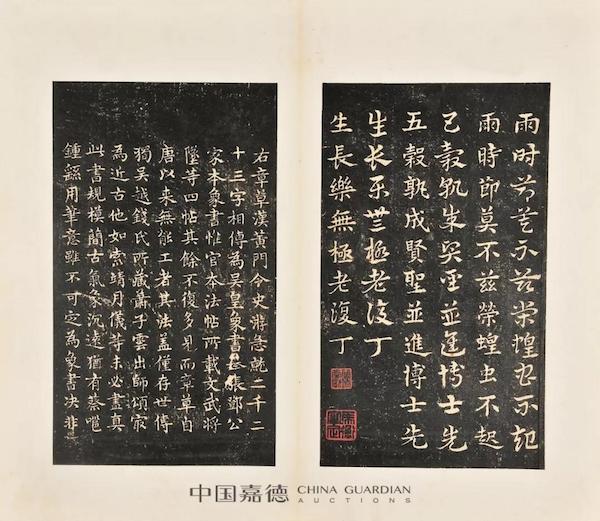 雨時節莫不茲榮蝗虫不起
雨時節莫不茲榮蝗虫不起
五穀孰成賢聖並進博士先
五穀孰成賢聖並進博士先
生長樂無極老復丁
生長樂無極老復丁
右章草漢黃門令史游急就二千二
十三字相傳為吳皇象書張鄧公
家本象書惟官本法帖所載文武將
墜等四帖其餘不復多見而章草自
唐以來無能工者其法蓋僅存世傳
獨吳越錢氏所藏蕭子雲出師頌㝡
為近古他如索靖月儀等未必盡真
此書規模簡古氣象沉遠猶有蔡邕
鍾繇用筆意雖不可定為象書决非
中国嘉德 CHINA GUARDIAN
AUCTIONS